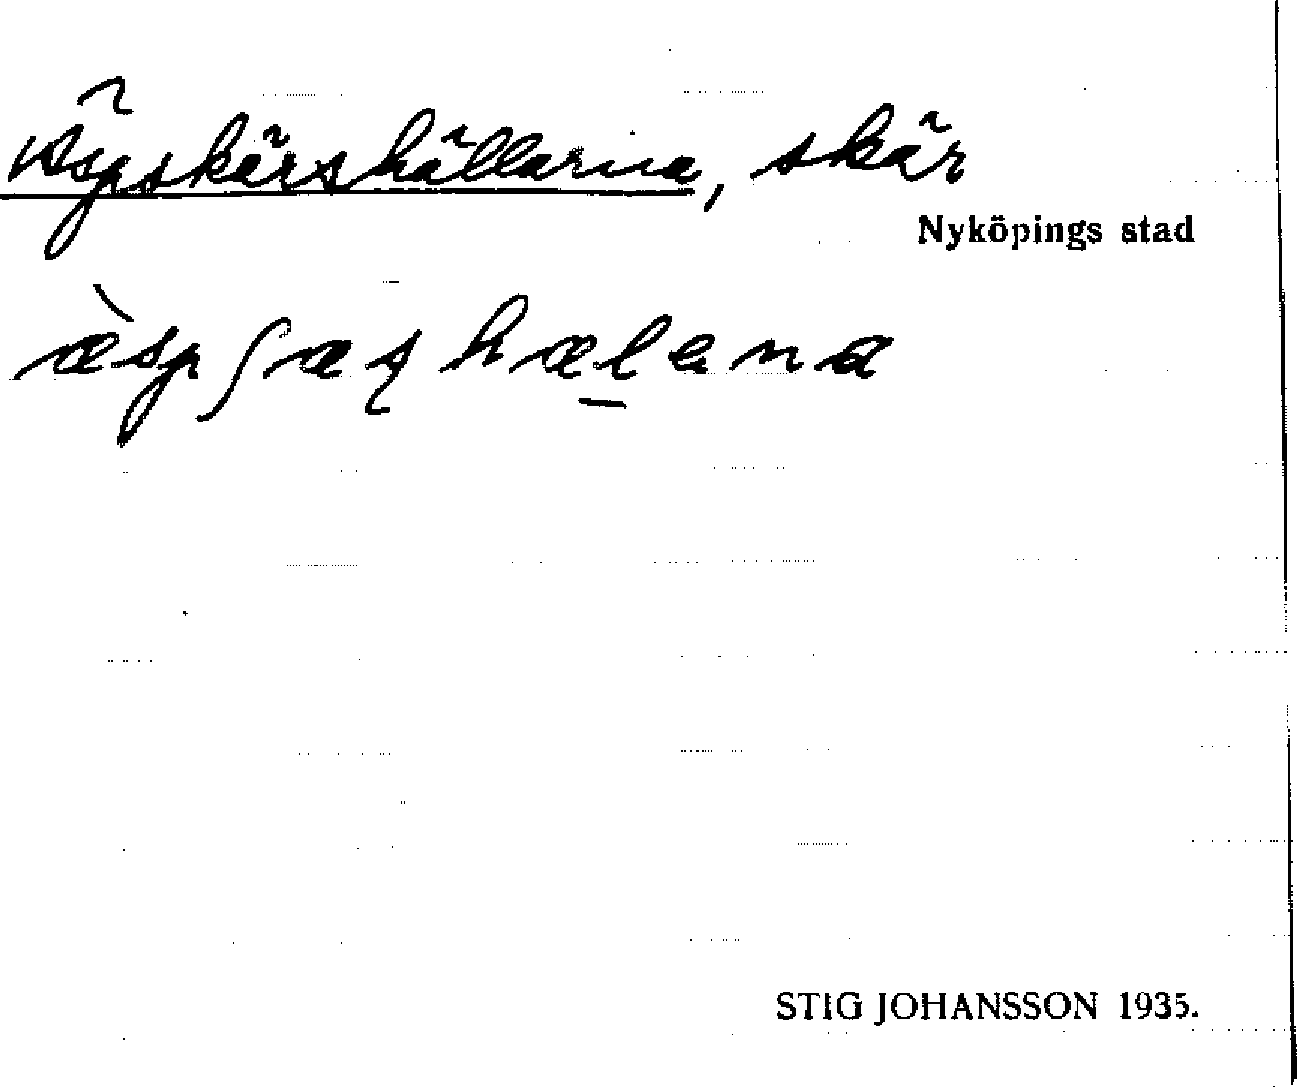 Äspskärshällarna, skär
Nyköpings stad
æ̀spʃæʂhælena
STIG JOHANSSON 1935.